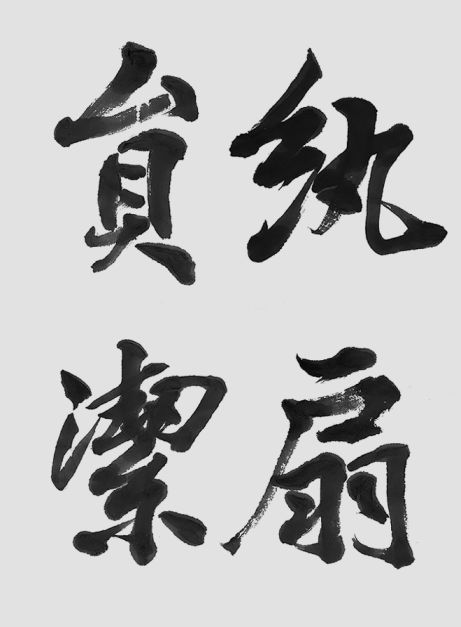 紈扇
員潔